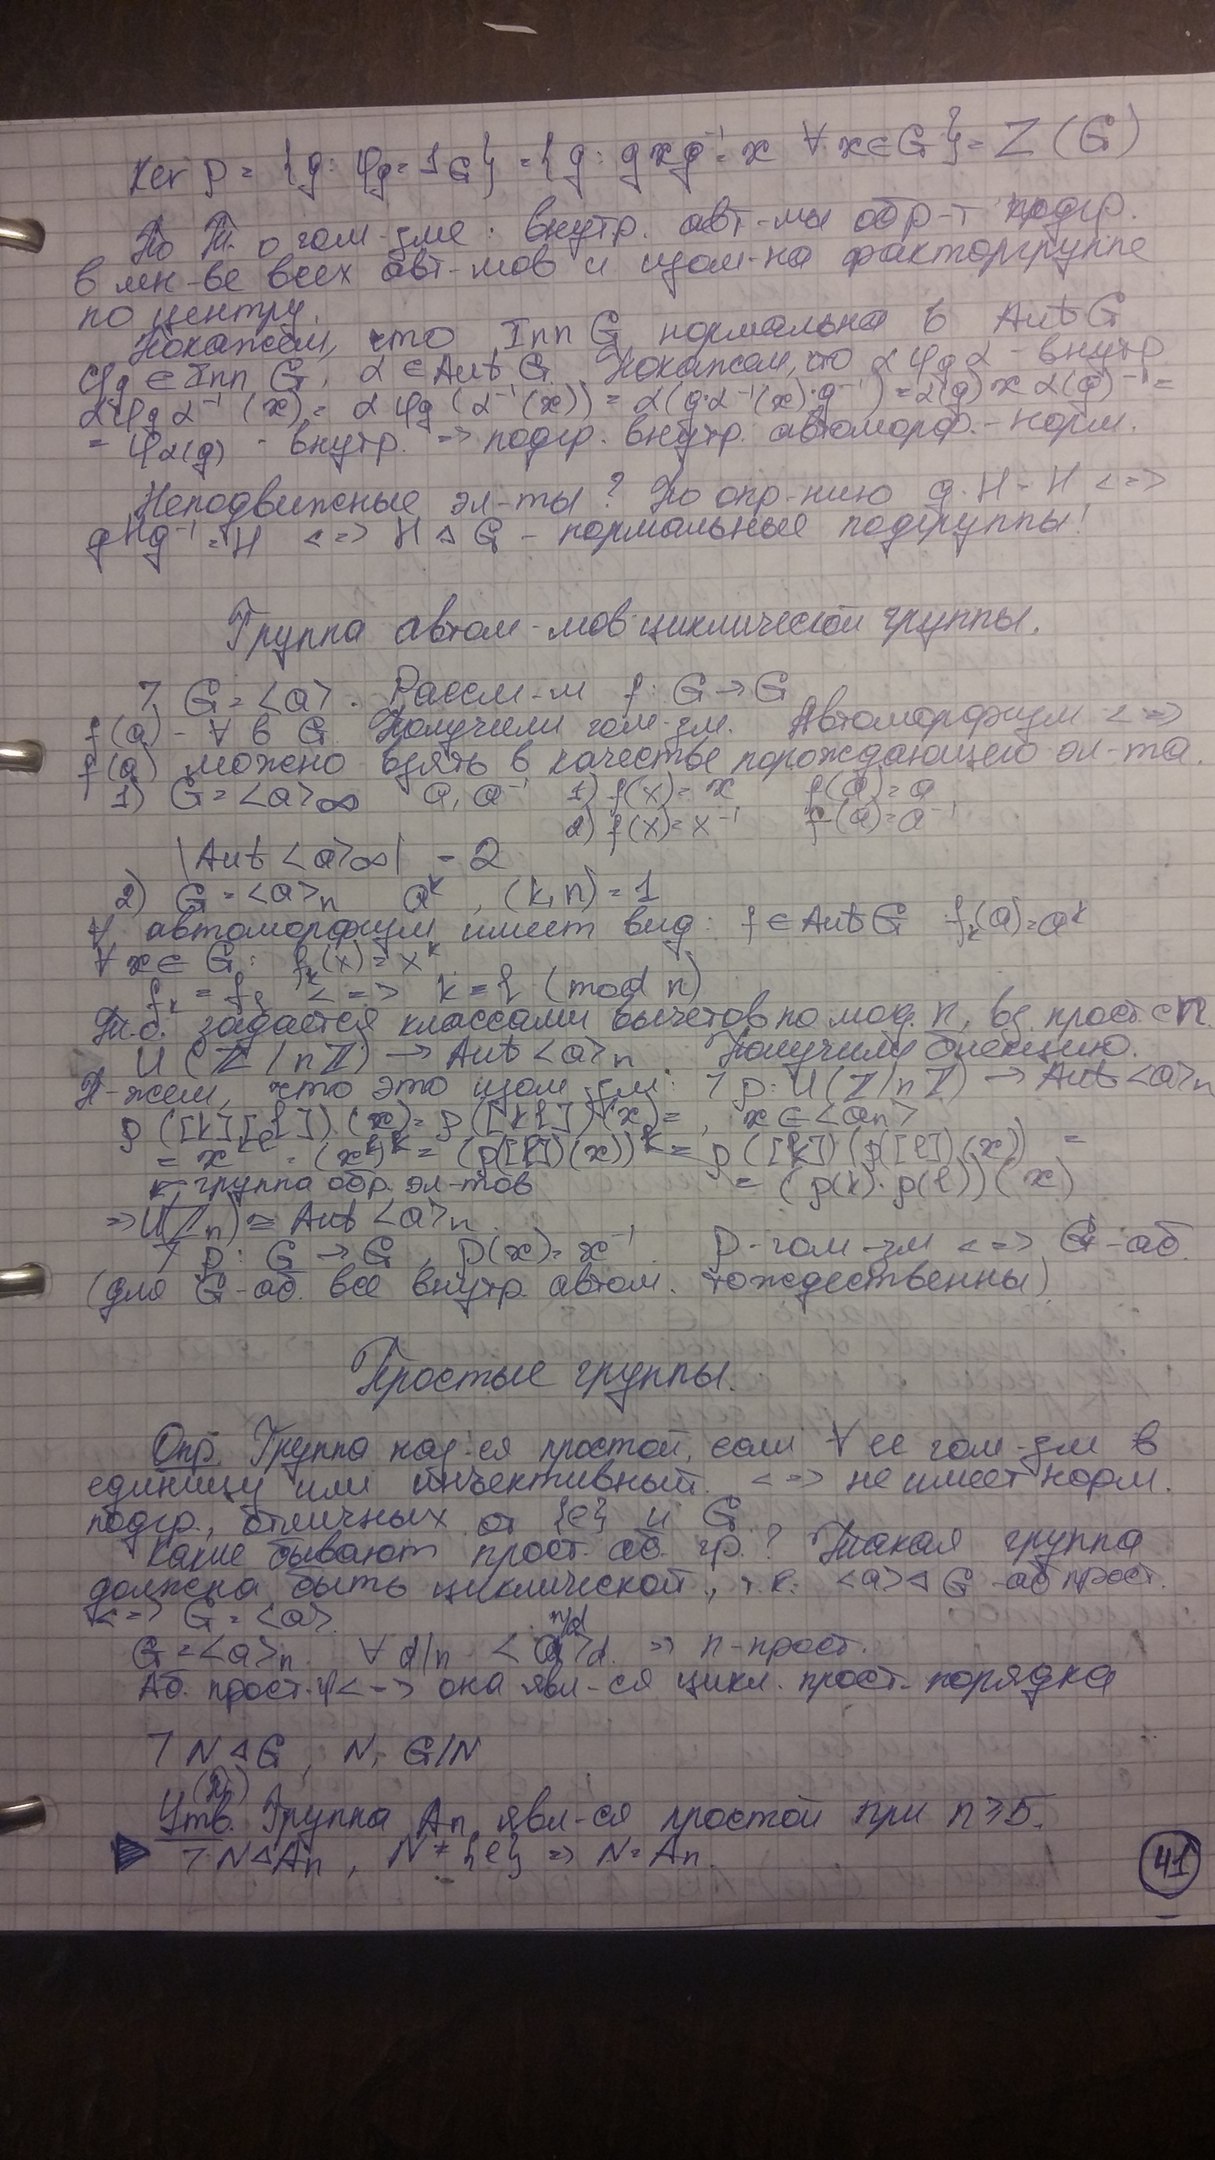 Ker ρ = {g: φg = 1G} = {g: gxg⁻¹ = x ∀ x∈G} = Z(G)
По Т. о гом-зме: внутр. авт-мы обр-т подгр.
в мн-ве всех авт-мов и изом-на факторгруппе
по центру.
Покажем, что Inn G нормальна в Aut G
φg ∈ Inn G, α ∈ Aut G. Покажем, что α φg α - внутр
α φg α⁻¹ (x) = α φg (α⁻¹(x)) = α(g·α⁻¹(x)·g⁻¹) = α(g) x α(g)⁻¹ =
= φα(g) - внутр. => подгр. внутр. автоморф. - норм.
Неподвижные эл-ты? По опр-нию g·H = H <=>
gHg⁻¹ = H <=> H ⊲ G - нормальные подгруппы!
Группа автом-мов циклической группы.
7 G = <a>. Рассм-м f: G → G
f(a) - ∀ в G. Получили гом-зм. Автоморфизм <=>
f(a) можно взять в качестве порождающего эл-та.
1) G = <a>∞ a, a⁻¹ 1) f(x) = x f(a) = a
2) f(x) = x⁻¹ f(a) = a⁻¹
|Aut <a>∞| = 2
2) G = <a>n aᵏ, (k, n) = 1
∀ автоморфизм имеет вид: f ∈ Aut G fk(a) = aᵏ
∀ x ∈ G: fk(x) = xᵏ
fk = fl <=> k = l (mod n)
Т.о. задается классами вычетов по мод. n, вз. прост. с n.
U(Z/nZ) → Aut <a>n Получили биекцию.
П-жем, что это изом-зм: 7 ρ: U(Z/nZ) → Aut <a>n
ρ([k][l])(x) = ρ([kl])(x) = , x ∈ <an>
= xᵏˡ = (xˡ)ᵏ = (ρ([l])(x))ᵏ = ρ([k])(ρ([l])(x)) =
группа обр. эл-тов = (ρ(k)·ρ(l))(x)
=> U(Zn) ≅ Aut <a>n
7 ρ: G → G, ρ(x) = x⁻¹ ρ - гом-зм <=> G - аб.
(для G - аб. все внутр. автом. тождественны)
Простые группы.
Опр. Группа наз-ся простой, если ∀ ее гом-зм в
единицу или инъективный. <=> не имеет норм.
подгр., отличных от {e} и G.
Какие бывают прост. аб. гр.? Такая группа
должна быть циклической, т.к. <a> ⊲ G - аб прост.
<=> G = <a>.
G = <a>n ∀ d|n <aⁿ/ᵈ>d => n - прост.
Аб. прост. <=> она явл-ся цикл. прост. порядка
7 N ⊲ G, N, G/N
Утв. Группа An явл-ся простой при n ≥ 5.
7 N ⊲ An, N ≠ {e} => N = An.
41